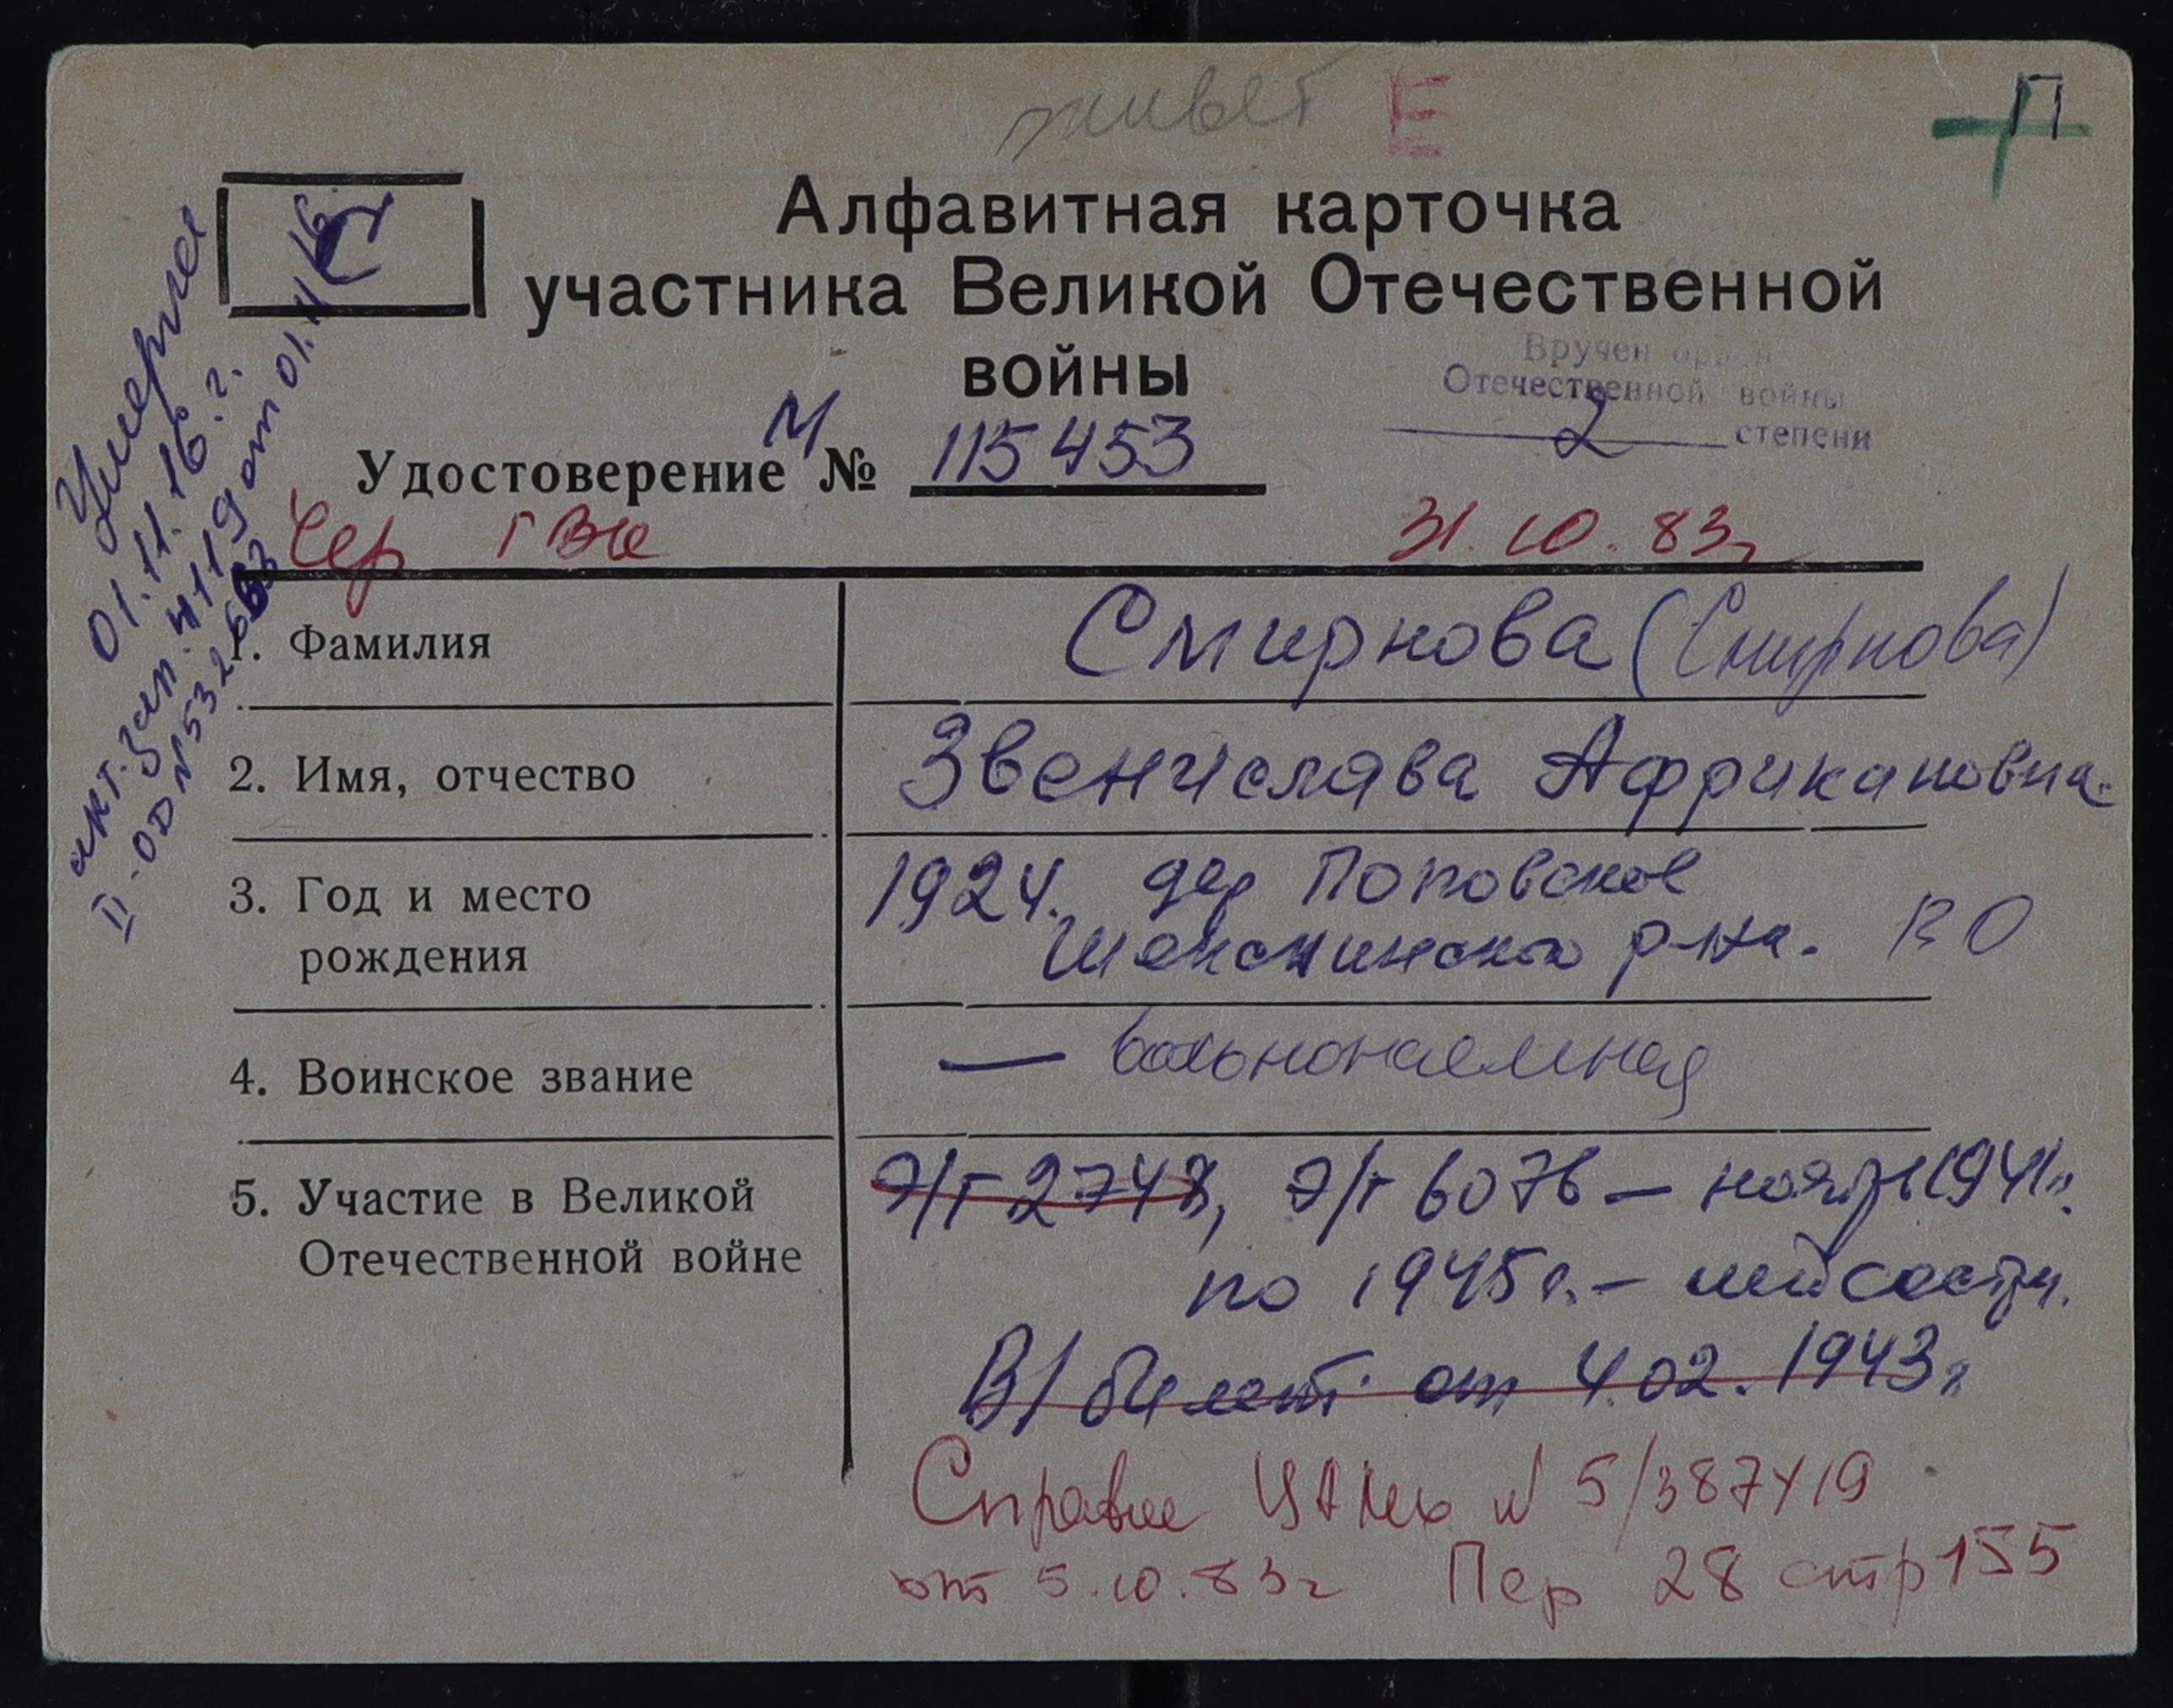 живет Е П
С
Алфавитная карточка
участника Великой Отечественной
войны
Вручен орден
Отечественной войны
2 степени
Удостоверение М № 115453
Чер ГВК 31.10.83г
Умерла
01.11.16 г.
акт. зап. 4119 от 01.11.16
II-ОД № 532663
1. Фамилия
Смирнова (Смирнова)
2. Имя, отчество
Звенислава Африкановна
3. Год и место
рождения
1924. дер Поповское
Шекснинского р-на. ВО
4. Воинское звание
— вольнонаемная
5. Участие в Великой
Отечественной войне
Э/г 2748, Э/г 6076 — ноябрь 1941г.
по 1945г. — медсестра.
В/билет от 4.02.1943г
Справка ЦАМО № 5/387419
от 5.10.83г Пер 28 стр 155